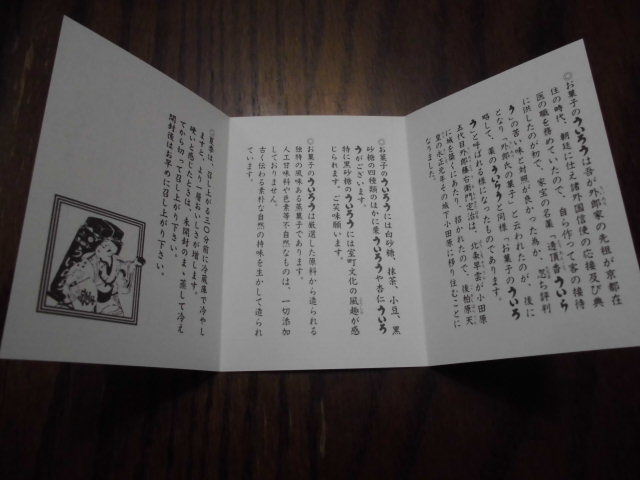 ◎お菓子のういろうは吾が外郎家の先祖が京都在
住の時代、朝廷に仕え諸外国信使の応接及び典
医の職を務めていたので、自ら作って客の接待
に供したのが初で、家宝の名薬「透頂香ういろ
う」の苦い味と対照が良かった為か、忽ち評判
となり「外郎の菓子」と云われたのが、後に
略して、薬のういろうと同様「お菓子のういろ
う」と呼ばれる様になったものであります。
五代目外郎藤右衛門定治は、北条早雲が小田原
に城を築くにあたり、招かれたので、後柏原天
皇の永正元年その城下小田原に移り住むことに
なりました。
◎お菓子のういろうには白砂糖、抹茶、小豆、黒
砂糖の四種類のほかに栗ういろうや杏仁ういろ
うがございます。
特に黒砂糖のういろうには室町文化の風趣が感
じられます。ご笑味願います。
◎お菓子のういろうは厳選した原料から造られる
独特の風味ある蒸菓子であります。
人工甘味料や色素等不自然なものは、一切添加
しておりません。
古く伝わる素朴な自然の持味を生かして造られ
ています。
◎夏季は、召し上がる三〇分前に冷蔵庫で冷やし
ますと、より一層おいしさが増します。
硬いと感じたときは、未開封のまゝ蒸して冷え
てから切って召し上がり下さい。
開封後はお早めに召し上がり下さい。